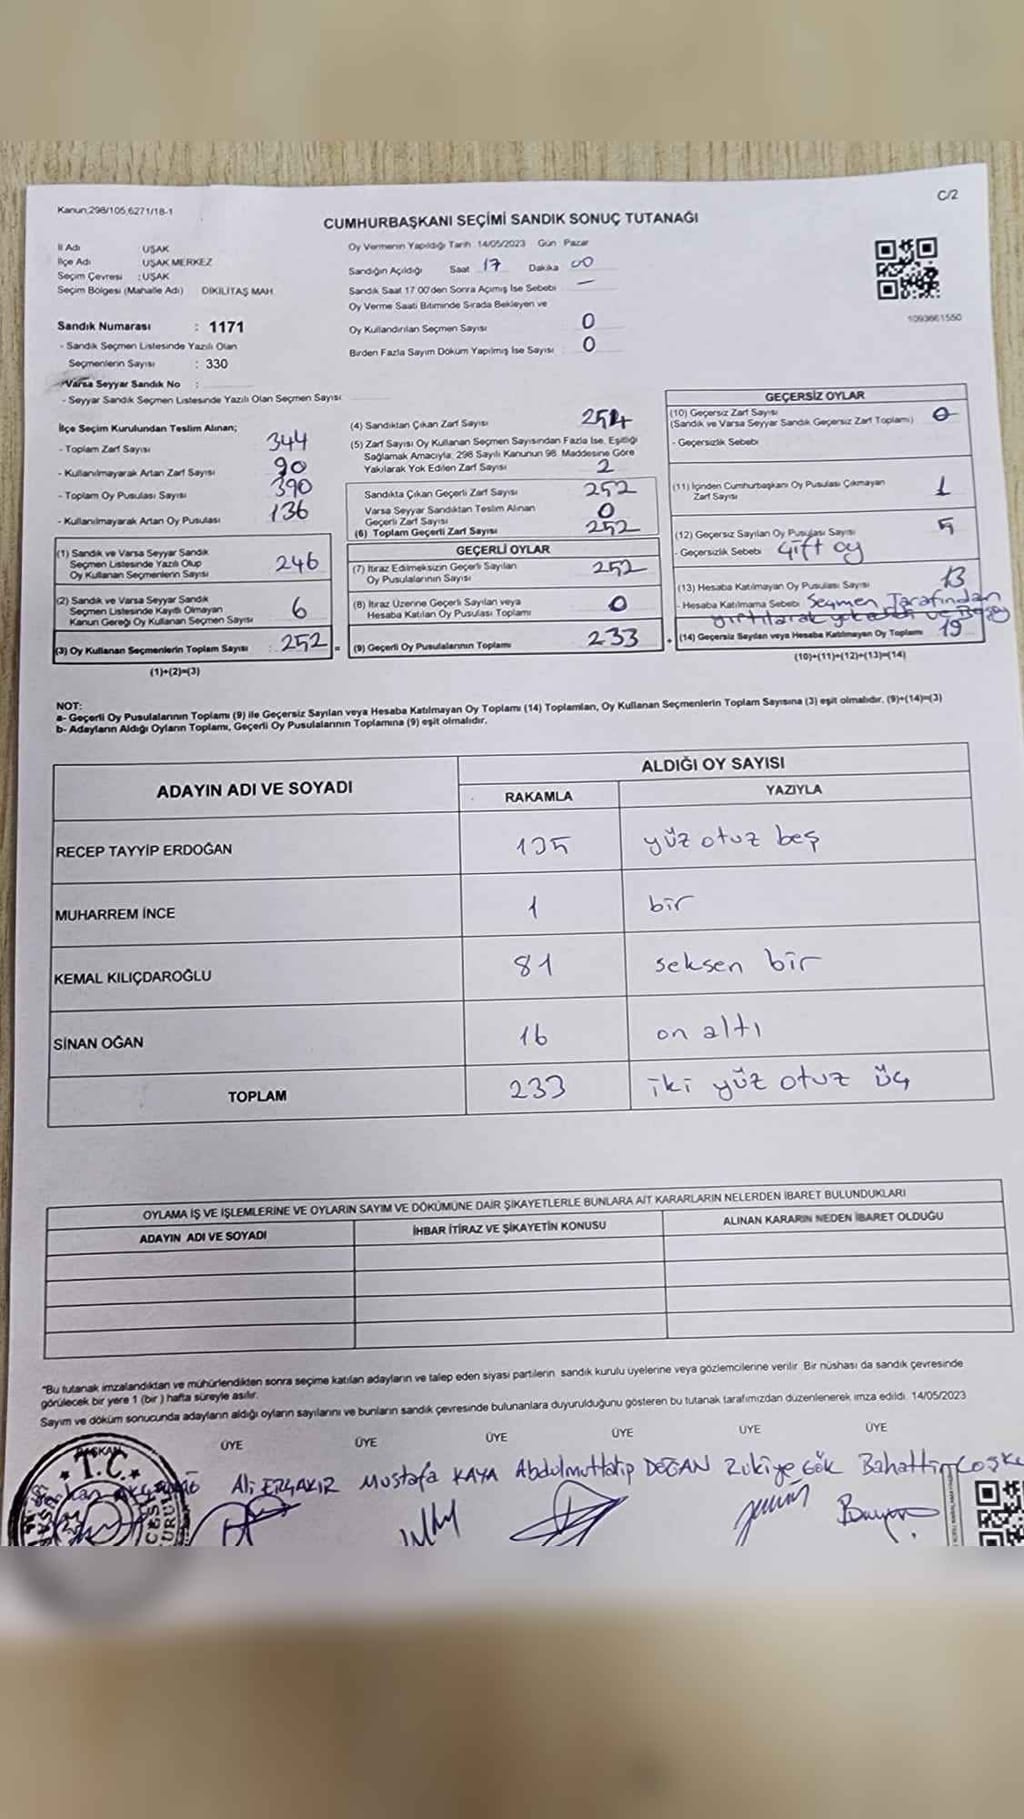 C/2
Kanun;298/105,6271/18-1
CUMHURBAŞKANI SEÇİMİ SANDIK SONUÇ TUTANAĞI
İl Adı UŞAK
İlçe Adı UŞAK MERKEZ
Seçim Çevresi : UŞAK
Seçim Bölgesi (Mahalle Adı) DİKİLİTAŞ MAH.
Sandık Numarası : 1171
- Sandık Seçmen Listesinde Yazılı Olan
Seçmenlerin Sayısı : 330
Varsa Seyyar Sandık No :
- Seyyar Sandık Seçmen Listesinde Yazılı Olan Seçmen Sayısı
Oy Vermenin Yapıldığı Tarih 14/05/2023 Gün Pazar
Sandığın Açıldığı Saat 17 Dakika 00
Sandık Saat 17 00'den Sonra Açımış İse Sebebi —
Oy Verme Saati Bitiminde Sırada Bekleyen ve
Oy Kullandırılan Seçmen Sayısı 0
Birden Fazla Sayım Döküm Yapılmış İse Sayısı 0
1093661550
İlçe Seçim Kurulundan Teslim Alınan;
- Toplam Zarf Sayısı 344
- Kullanılmayarak Artan Zarf Sayısı 90
- Toplam Oy Pusulası Sayısı 390
- Kullanılmayarak Artan Oy Pusulası 136
(1) Sandık ve Varsa Seyyar Sandık
Seçmen Listesinde Yazılı Olup
Oy Kullanan Seçmenlerin Sayısı 246
(2) Sandık ve Varsa Seyyar Sandık
Seçmen Listesinde Kayıtlı Olmayan
Kanun Gereği Oy Kullanan Seçmen Sayısı 6
(3) Oy Kullanan Seçmenlerin Toplam Sayısı : 252 =
(1)+(2)=(3)
(4) Sandıktan Çıkan Zarf Sayısı 254
(5) Zarf Sayısı Oy Kullanan Seçmen Sayısından Fazla İse, Eşitliği
Sağlamak Amacıyla; 298 Sayılı Kanunun 98. Maddesine Göre
Yakılarak Yok Edilen Zarf Sayısı 2
Sandıkta Çıkan Geçerli Zarf Sayısı 252
Varsa Seyyar Sandıktan Teslim Alınan
Geçerli Zarf Sayısı 0
(6) Toplam Geçerli Zarf Sayısı 252
GEÇERLİ OYLAR
(7) İtiraz Edilmeksizin Geçerli Sayılan
Oy Pusulalarının Sayısı 252
(8) İtiraz Üzerine Geçerli Sayılan veya
Hesaba Katılan Oy Pusulası Toplamı 0
(9) Geçerli Oy Pusulalarının Toplamı 233 +
GEÇERSİZ OYLAR
(10) Geçersiz Zarf Sayısı
(Sandık ve Varsa Seyyar Sandık Geçersiz Zarf Toplamı) 0
- Geçersizlik Sebebi
(11) İçinden Cumhurbaşkanı Oy Pusulası Çıkmayan
Zarf Sayısı 1
(12) Geçersiz Sayılan Oy Pusulası Sayısı 5
- Geçersizlik Sebebi Çift oy
(13) Hesaba Katılmayan Oy Pusulası Sayısı 13
- Hesaba Katılmama Sebebi Seçmen Tarafından
yırtılarak
(14) Geçersiz Sayılan veya Hesaba Katılmayan Oy Toplamı 19
(10)+(11)+(12)+(13)=(14)
NOT:
a- Geçerli Oy Pusulalarının Toplamı (9) ile Geçersiz Sayılan veya Hesaba Katılmayan Oy Toplamı (14) Toplamları, Oy Kullanan Seçmenlerin Toplam Sayısına (3) eşit olmalıdır. (9)+(14)=(3)
b- Adayların Aldığı Oyların Toplamı, Geçerli Oy Pusulalarının Toplamına (9) eşit olmalıdır.
ADAYIN ADI VE SOYADI ALDIĞI OY SAYISI
RAKAMLA YAZIYLA
RECEP TAYYİP ERDOĞAN 135 yüz otuz beş
MUHARREM İNCE 1 bir
KEMAL KILIÇDAROĞLU 81 seksen bir
SİNAN OĞAN 16 on altı
TOPLAM 233 iki yüz otuz üç
OYLAMA İŞ VE İŞLEMLERİNE VE OYLARIN SAYIM VE DÖKÜMÜNE DAİR ŞİKAYETLERLE BUNLARA AİT KARARLARIN NELERDEN İBARET BULUNDUKLARI
ADAYIN ADI VE SOYADI İHBAR İTİRAZ VE ŞİKAYETİN KONUSU ALINAN KARARIN NEDEN İBARET OLDUĞU
"Bu tutanak imzalandıktan ve mühürlendikten sonra seçime katılan adayların ve talep eden siyasi partilerin sandık kurulu üyelerine veya gözlemcilerine verilir. Bir nüshası da sandık çevresinde
görülecek bir yere 1 (bir) hafta süreyle asılır.
Sayım ve döküm sonucunda adayların aldığı oyların sayılarını ve bunların sandık çevresinde bulunanlara duyurulduğunu gösteren bu tutanak tarafımızdan düzenlenerek imza edildi. 14/05/2023
BAŞKAN ÜYE ÜYE ÜYE ÜYE ÜYE ÜYE
T.C.
Ali ERÇAKIR Mustafa KAYA Abdulmuttalip DOĞAN Zekiye Gök Bahattin